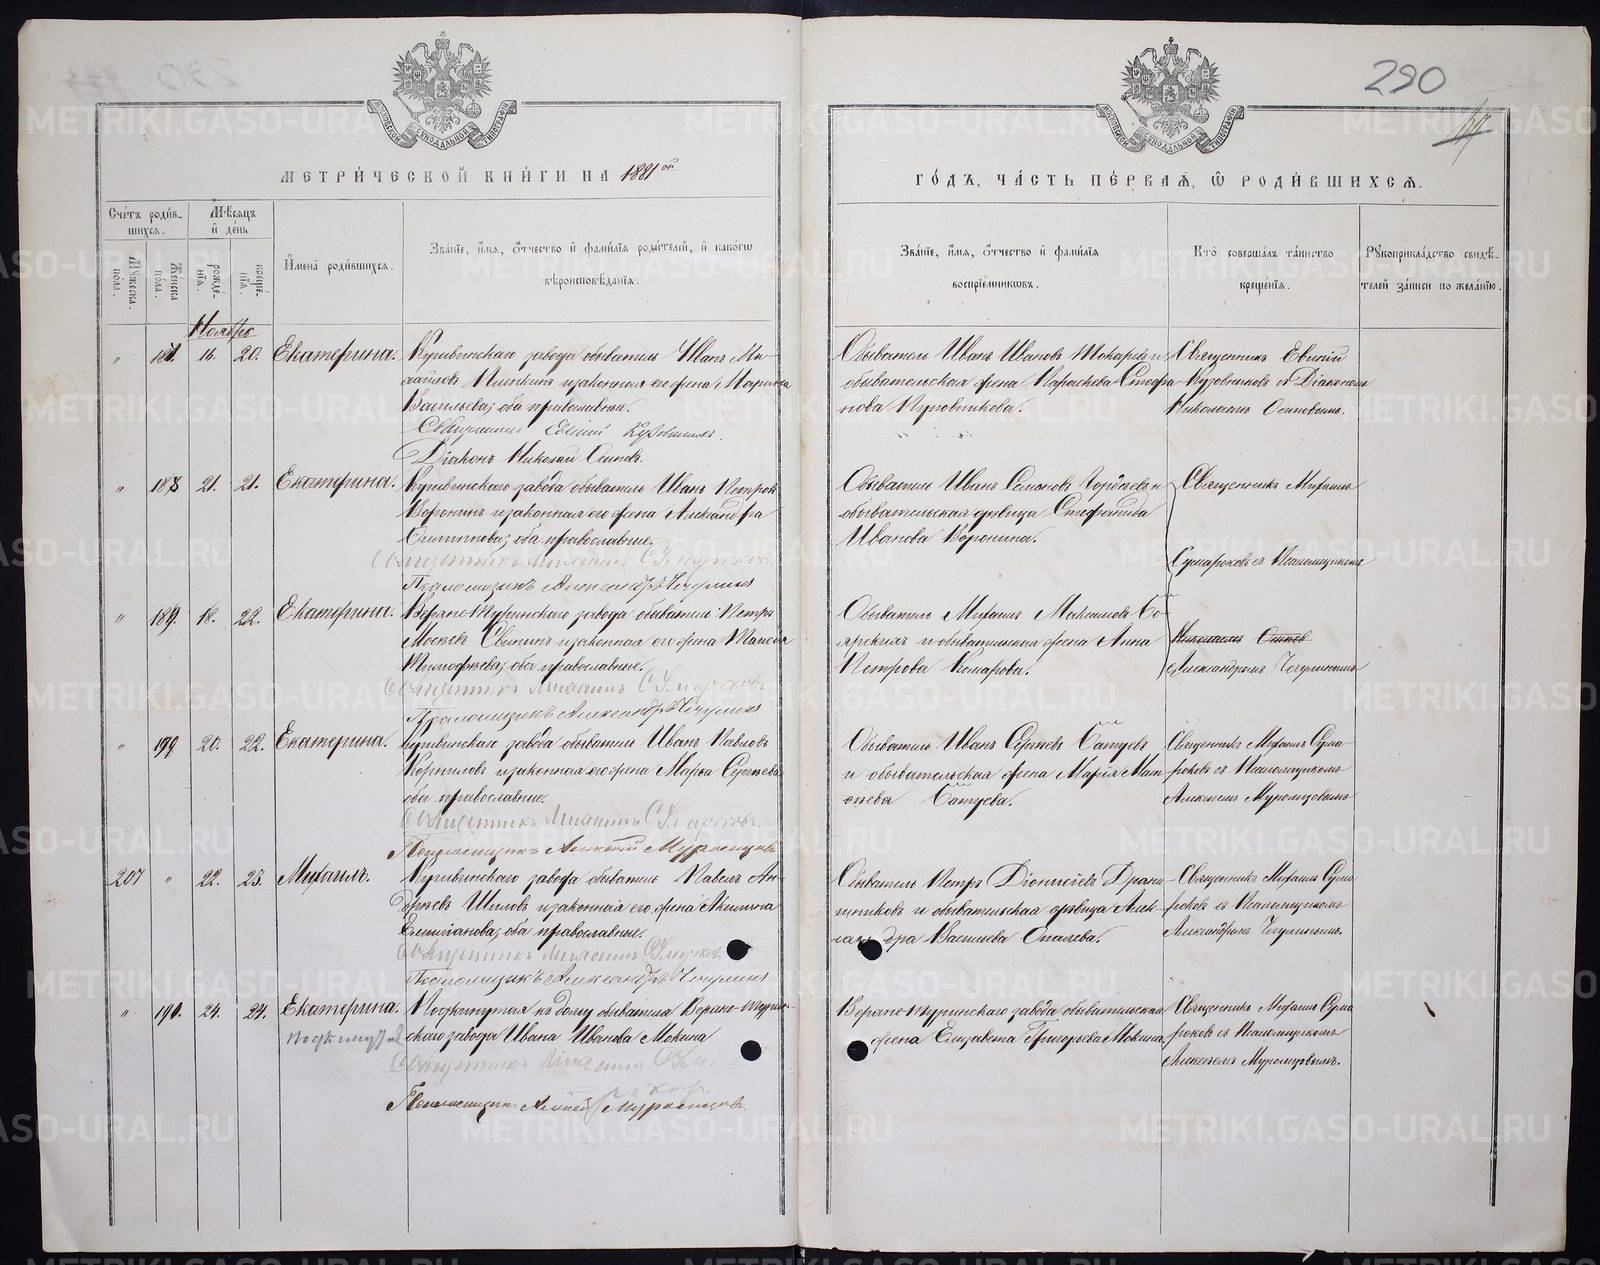 290
МЕТРИ́ЧЕСКОЙ КНИ́ГИ НА 1881ой
ГО́ДЪ, ЧА́СТЬ ПЕ́РВАЯ, Ѡ РОДИ́ВШИХСЯ.
Сче́тъ роди́в-
шихся.
Мѣсяцъ
и҆ де́нь
Мꙋ́жеска по́ла.
Же́нска по́ла.
рожде́-
нїя.
креще́-
нїя.
И҆мена̀ роди́вшихся.
Зва́нїе, и҆́мя, ѻ҆́тчество и҆ фами́лїя роди́телей, и҆ како́гѡ
вѣроисповѣ́данїя.
Зва́нїе, и҆́мя, ѻ҆́тчество и҆ фами́лїя
воспрїе́мникѡвъ.
Кто̀ соверша́лъ та́инство
креще́нїя.
Рꙋкоприкла́дство свидѣ́-
телей за́писи по жела́нїю.
Ноябрь
" 187. 16. 20. Екатерина. Кушвинскаго завода обыватель Иванъ Ми-
хайловъ и законная его жена Марина
Васильева; оба православные.
Священникъ Евгений Кузовниковъ.
Діаконъ Николай Осиповъ.
Обыватель Иванъ Ивановъ Токаревъ и
обывательская жена Параскева Стефа-
нова Кузовникова.
Священникъ Евгений
Кузовниковъ съ Діакономъ
Николаемъ Осиповымъ.
" 188 21. 21. Екатерина. Кушвинскаго завода обыватель Иванъ Петровъ
Воронинъ и законная его жена Александра
Филиппова; оба православные.
Священникъ Михаилъ Сумароковъ
Псаломщикъ Александръ Чечулинъ
Обыватель Иванъ Семеновъ Гордѣевъ и
обывательская дѣвица Стефанида
Иванова Воронина.
Священникъ Михаилъ
Сумароковъ съ Псаломщикомъ
" 189. 18. 22. Екатерина. Верхне-Туринскаго завода обыватель Петръ
и законная его жена Таисія
Тимофѣева; оба православные.
Священникъ Михаилъ Сумароковъ
Псаломщикъ Александръ Чечулинъ
Обыватель Михаилъ Максимовъ Бо-
ярскихъ и обывательская жена Анна
Петрова Комарова.
Николаемъ Осипов
Александромъ Чечулинымъ
" 190 20. 22. Екатерина. Кушвинскаго завода обыватель Иванъ Павловъ
Корниловъ и законная его жена Марѳа Сергѣева
оба православные.
Священникъ Михаилъ Сумароковъ.
Псаломщикъ Алексѣй Муромцовъ
Обыватель Иванъ Сергѣевъ
и обывательская жена Марія Мат-
ѳѣева
Священникъ Михаилъ Сума-
роковъ съ Псаломщикомъ
Алексѣемъ Муромцовымъ
207 " 22. 23. Михаилъ. Кушвинскаго завода обыватель Павелъ Ан-
дреевъ Шиловъ и законная его жена Акилина
Емилианова; оба православные.
Священникъ Михаилъ Сумароковъ
Псаломщикъ Александръ Чечулинъ
Обыватель Петръ Діонисіевъ Драни-
шниковъ и обывательская дѣвица Алек-
сандра Васильева
Священникъ Михаилъ Сума-
роковъ съ Псаломщикомъ
Александромъ Чечулинымъ.
" 191. 24. 24. Екатерина. Подкинутая къ дому обывателя Верхне-Турин-
подкинутая скаго завода Ивана Иванова Мокина
Священникъ Михаилъ Сумароковъ
Псаломщикъ Алексѣй Муромцовъ.
Верхне-Туринскаго завода обывательская
жена Елизавета Григорьева Мокина.
Священникъ Михаилъ Сума-
роковъ съ Псаломщикомъ
Алексѣемъ Муромцовымъ.
METRIKI.GASO-URAL.RU